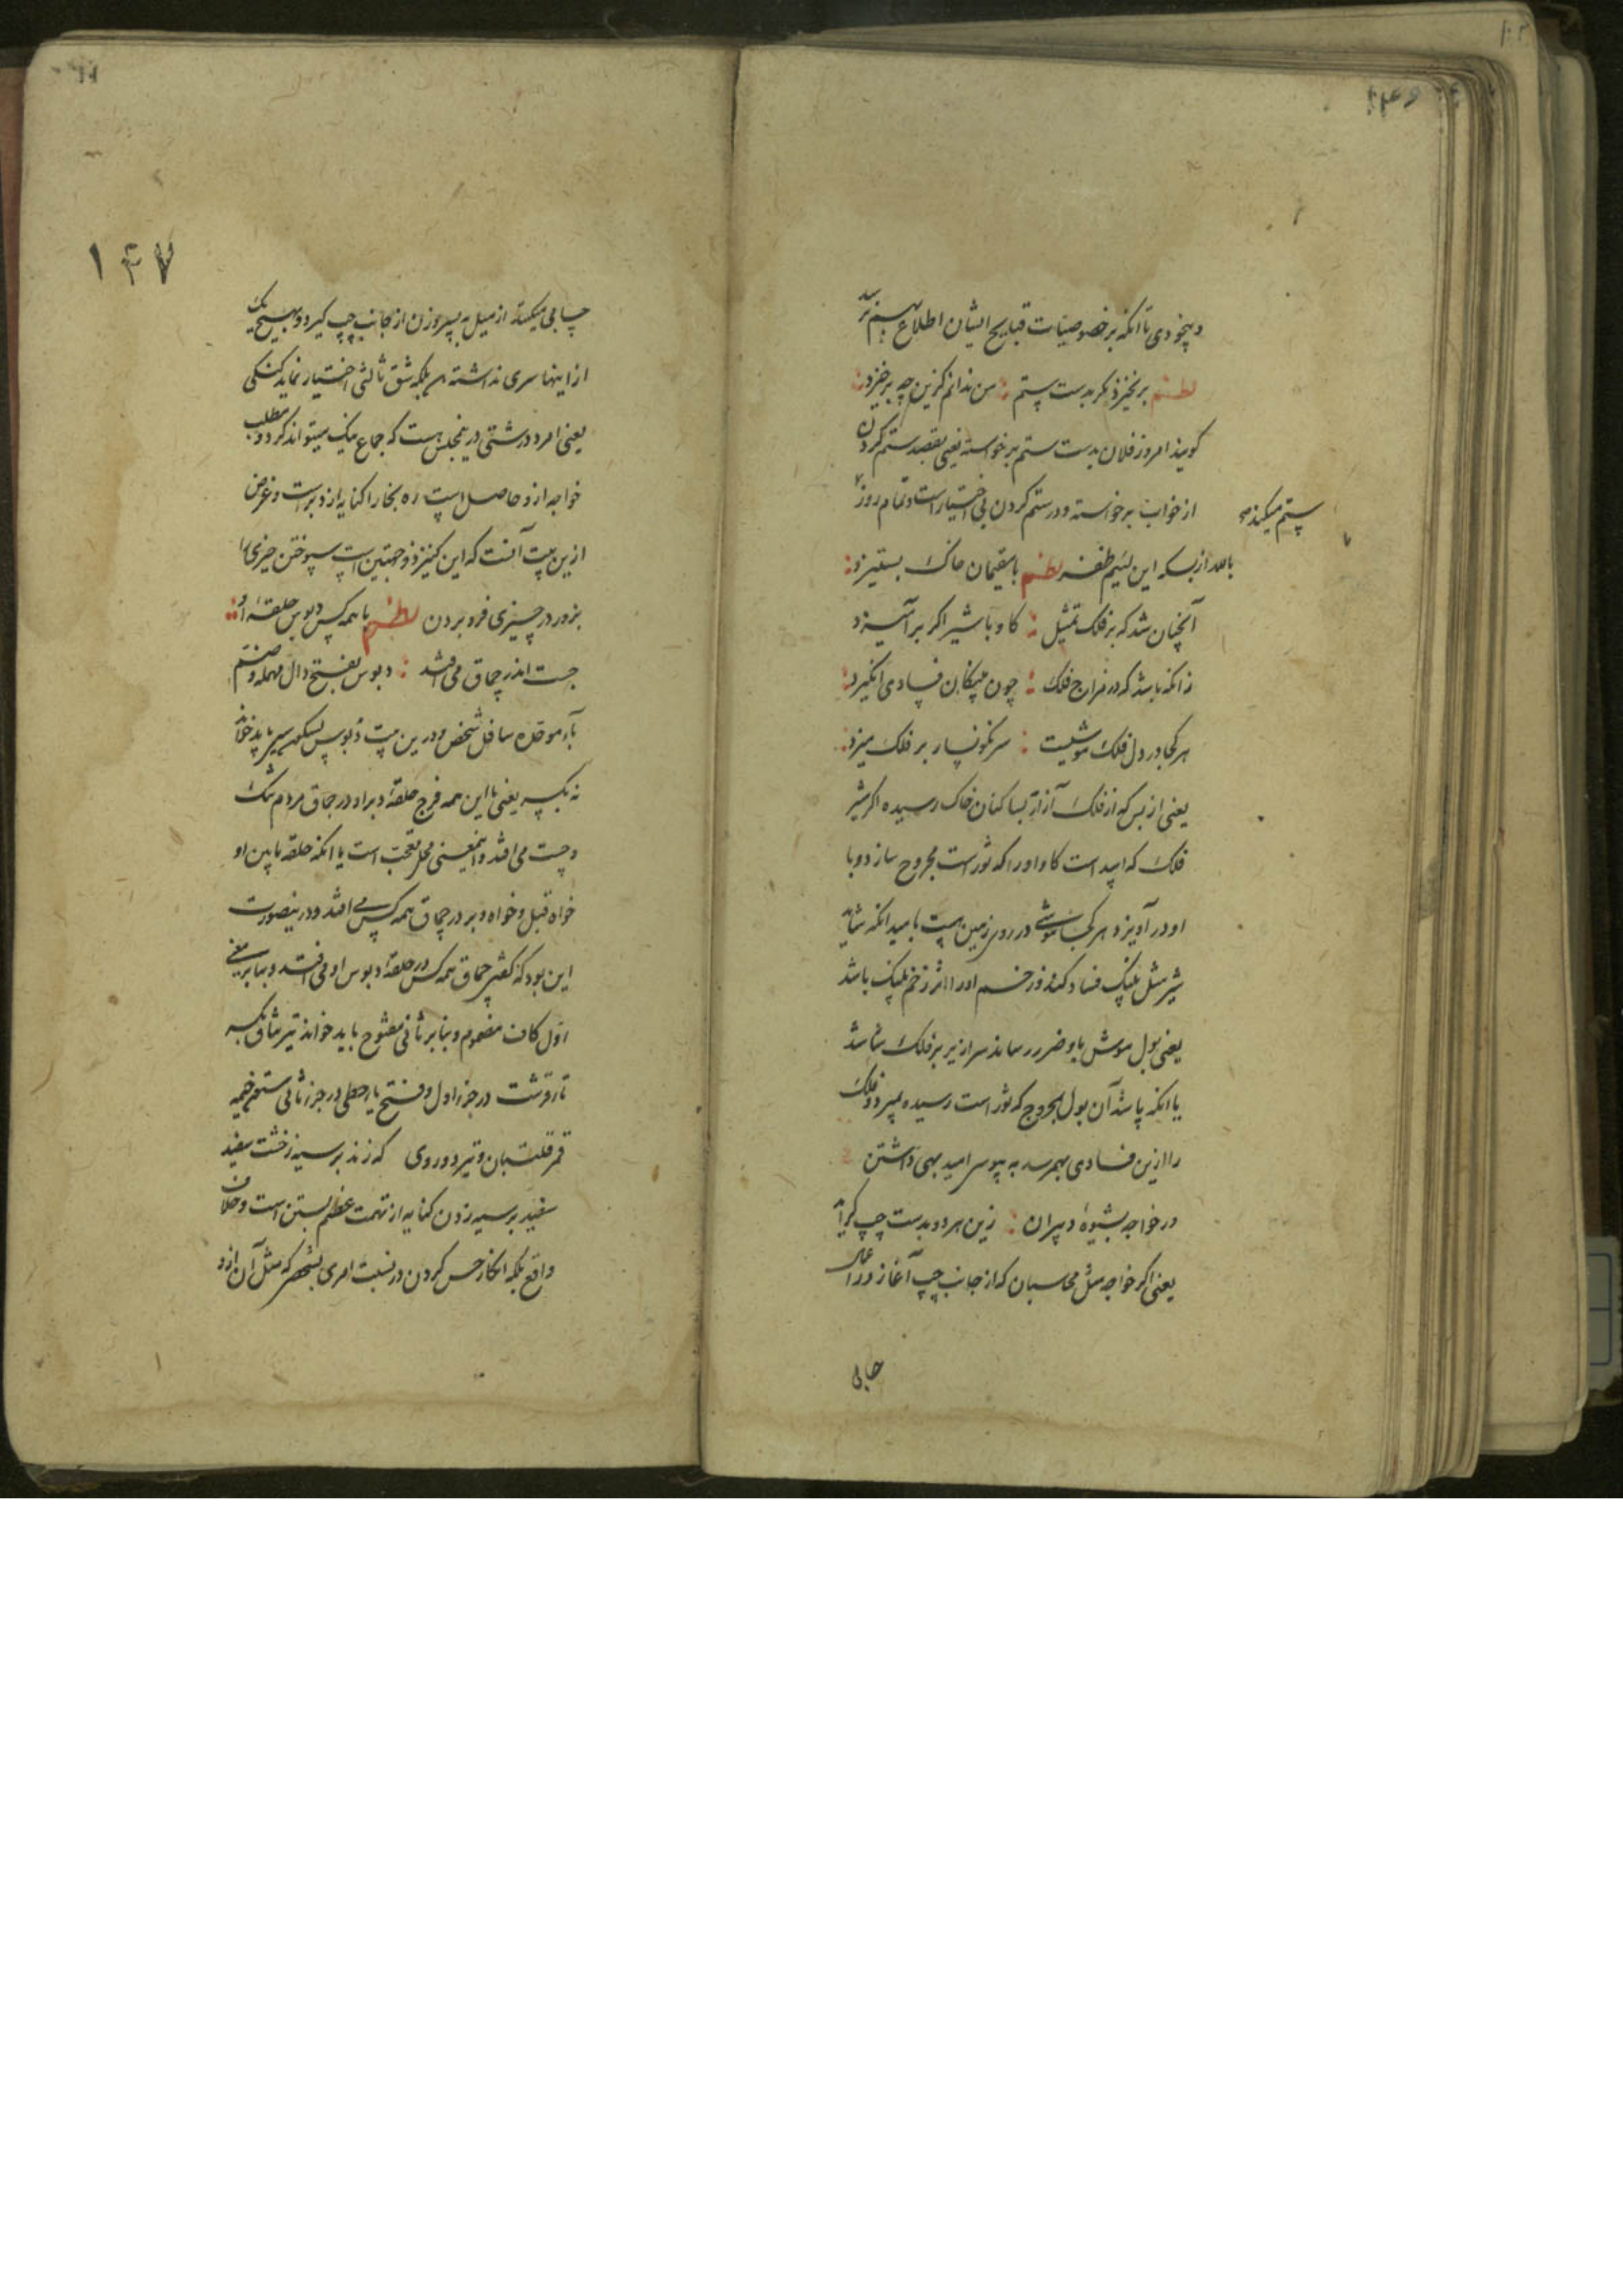 و بیخودی تا آنکه بر خصوصیات قبایح ایشان اطلاع بهم رسد
نظم برنخیزد مگر بدست ستم : من ندانم کزین چه برخیزد :
گویند امروز فلان بدست ستم برخواسته یعنی بقصد ستم کردن
از خواب برخواسته و در ستم کردن بی اختیار است و تمام روز
ستم میکند
از بسکه این لئیم ظفر نظم با مقیمان خاک بستیزد :
آنچنان شد که بر فلک تمثیل : گاو با شیر اگر برآمیزد
زانکه باشد که در مزاج فلک : چون پلنگان فسادی انگیزد :
هر کجا در دل فلک موشیست : سرنگونسار بر فلک میزد :
یعنی از بس که از فلک آزار بساکنان خاک رسیده اگر شیر
فلک که اسد است گاو او را که ثور است مجروح سازد و با
او درآویزد هر کجا موشی در روی زمین هست بامید آنکه شاید
شیر مثل پلنگ فساد کند و زخم او را اثر زخم پلنگ باشد
یعنی بول موش باو ضرر رساند سرازیر بر فلک شاشد
یا آنکه پاشد آن بول بمجروح که ثور است رسیده بمیرد و فلک
را ازین فسادی بهم رسد به پیوسر امید بهی داشتن
در خواجه بشیوهٔ دبیران : زین هر دو بدست چپ گراید
یعنی اگر خواجه مثل محاسبان که از جانب چپ آغاز در اعمال
حسابی
۱۴۷
حسابی میکنند از میل به پسر و زن از جانب چپ گیرد و بهیچ یک
از اینها سری نداشته بلکه شق ثالثی اختیار نماید کنکی
یعنی امرد درشتی درین مجلس هست که جماع نیک میتواند کرد و مطلب
خواجه ازو حاصل است ره بخارا کنایه از دبر است و غرض
ازین بیت آنست که این کنیز ذو جهتین است سپوختن چیزی را
بزور در چیزی فرو بردن نظم با همه کس دبوس حلقهٔ او :
جست اندر چماق می افتد : دبوس بفتح دال مهمله و ضم
باء موحده سافل شخص و درین بیت دبوس بسکون سین باید خواند
نه بکسر یعنی با این همه فرج حلقهٔ دبر او در چماق مردم تنگ
و چست می افتد و اینمعنی محل تعجب است یا آنکه حلقه پایین او
خواه قبل و خواه دبر در چماق همه کس می افتد و درینصورت
این بود که کفتر چماق همه کس در حلقهٔ دبوس او می افتد و بنابر معنی
اول کاف مضموم و بنابر ثانی مفتوح باید خواند تیر شاق بکسر
تا زرقشت در جزء اول و فتح یاء حطی در جزء ثانی ستون خیمه
قمر قلتبان و تیر دوروی که زند بر سیه زخشت سفید
سفید بر سیه زدن کنایه از تهمت عظیم بستن است و خلاف
واقع بلکه انکار حس کردن در نسبت امری بشخصی که مثل آن ازو